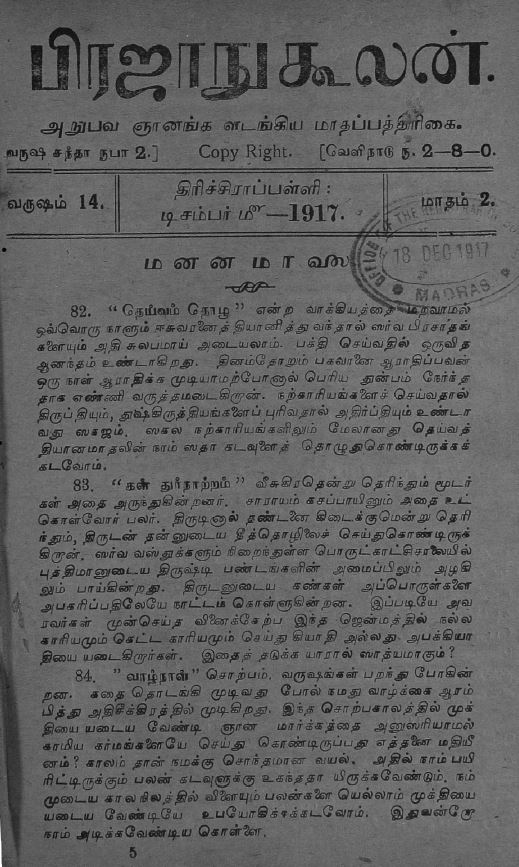 பிரஜாநுகூலன்.
அநுபவ ஞானங்க ளடங்கிய மாதப்பத்திரிகை.
வருஷ சந்தா ரூபா 2.] Copy Right. [வெளிநாடு ரூ. 2—8—0.
வருஷம் 14. திரிச்சிராப்பள்ளி : மாதம் 2.
டிசம்பர் மீ—1917.
OFFICE OF THE
18 DEC 1917
MADRAS
மனனமாலை
82. "தெய்வம் தொழு" என்ற வாக்கியத்தை மறவாமல்
ஒவ்வொரு நாளும் ஈசுவரனைத் தியானித்து வந்தால் ஸர்வ பிரசாதங்
களையும் அதி சுலபமாய் அடையலாம். பக்தி செய்வதில் ஒருவித
ஆனந்தம் உண்டாகிறது. தினம்தோறும் பகவானை ஆராதிப்பவன்
ஒரு நாள் ஆராதிக்க முடியாமற்போனால் பெரிய துன்பம் நேர்ந்த
தாக எண்ணி வருத்தமடைகிறான். நற்காரியங்களைச் செய்வதால்
திருப்தியும், துஷ்கிருத்தியங்களைப் புரிவதால் அதிர்ப்தியும் உண்டா
வது ஸகஜம். ஸகல நற்காரியங்களிலும் மேலானது தெய்வத்
தியானமாதலின் நாம் ஸதா கடவுளைத் தொழுதுகொண்டிருக்கக்
கடவோம்.
83. "கள் துர்நாற்றம்" வீசுகிறதென்று தெரிந்தும் மூடர்
கள் அதை அருந்துகின்றனர். சாராயம் கசப்பாயினும் அதை உட்
கொள்வோர் பலர். திருடினால் தண்டனை கிடைக்குமென்று தெரி
ந்தும், திருடன் தன்னுடைய இத்தொழிலைச் செய்துகொண்டிருக்
கிறான். ஸர்வ வஸ்துக்களும் நிறைந்துள்ள பொருட்காட்சிசாலையில்
புத்திமானுடைய திருஷ்டி பண்டங்களின் அமைப்பிலும் அழகி
லும் பாய்கின்றது. திருடனுடைய கண்கள் அப்பொருள்களை
அபகரிப்பதிலேயே நாட்டம் கொள்ளுகின்றன. இப்படியே அவ
ரவர்கள் முன்செய்த வினைக்கேற்ப இந்த ஜென்மத்தில் நல்ல
காரியமும் கெட்ட காரியமும் செய்து கியாதி அல்லது அபக்கியா
தியை யடைகிறார்கள். இதைத் தடுக்க யாரால் ஸாத்யமாகும்?
84. "வாழ்நாள்" சொற்பம். வருஷங்கள் பறந்து போகின்
றன. கதை தொடங்கி முடிவது போல் நமது வாழ்க்கை ஆரம்
பித்து அதிசீக்கிரத்தில் முடிகிறது. இந்த சொற்பகாலத்தில் முக்
தியை யடைய வேண்டி ஞான மார்க்கத்தை அனுஸரியாமல்
காமிய கர்மங்களையே செய்து கொண்டிருப்பது எத்தனை மதியீ
னம்? காலம் தான் நமக்கு சொந்தமான வயல். அதில் நாம் பயி
ரிட்டிருக்கும் பலன் கடவுளுக்கு உகந்ததா யிருக்கவேண்டும். நம்
முடைய காலநிலத்தில் விளையும் பலன்களை யெல்லாம் முக்தியை
யடைய வேண்டியே உபயோகிக்கக்கடவோம். இதுவன்றோ
நாம் அடிக்கவேண்டிய கொள்ளை.
5